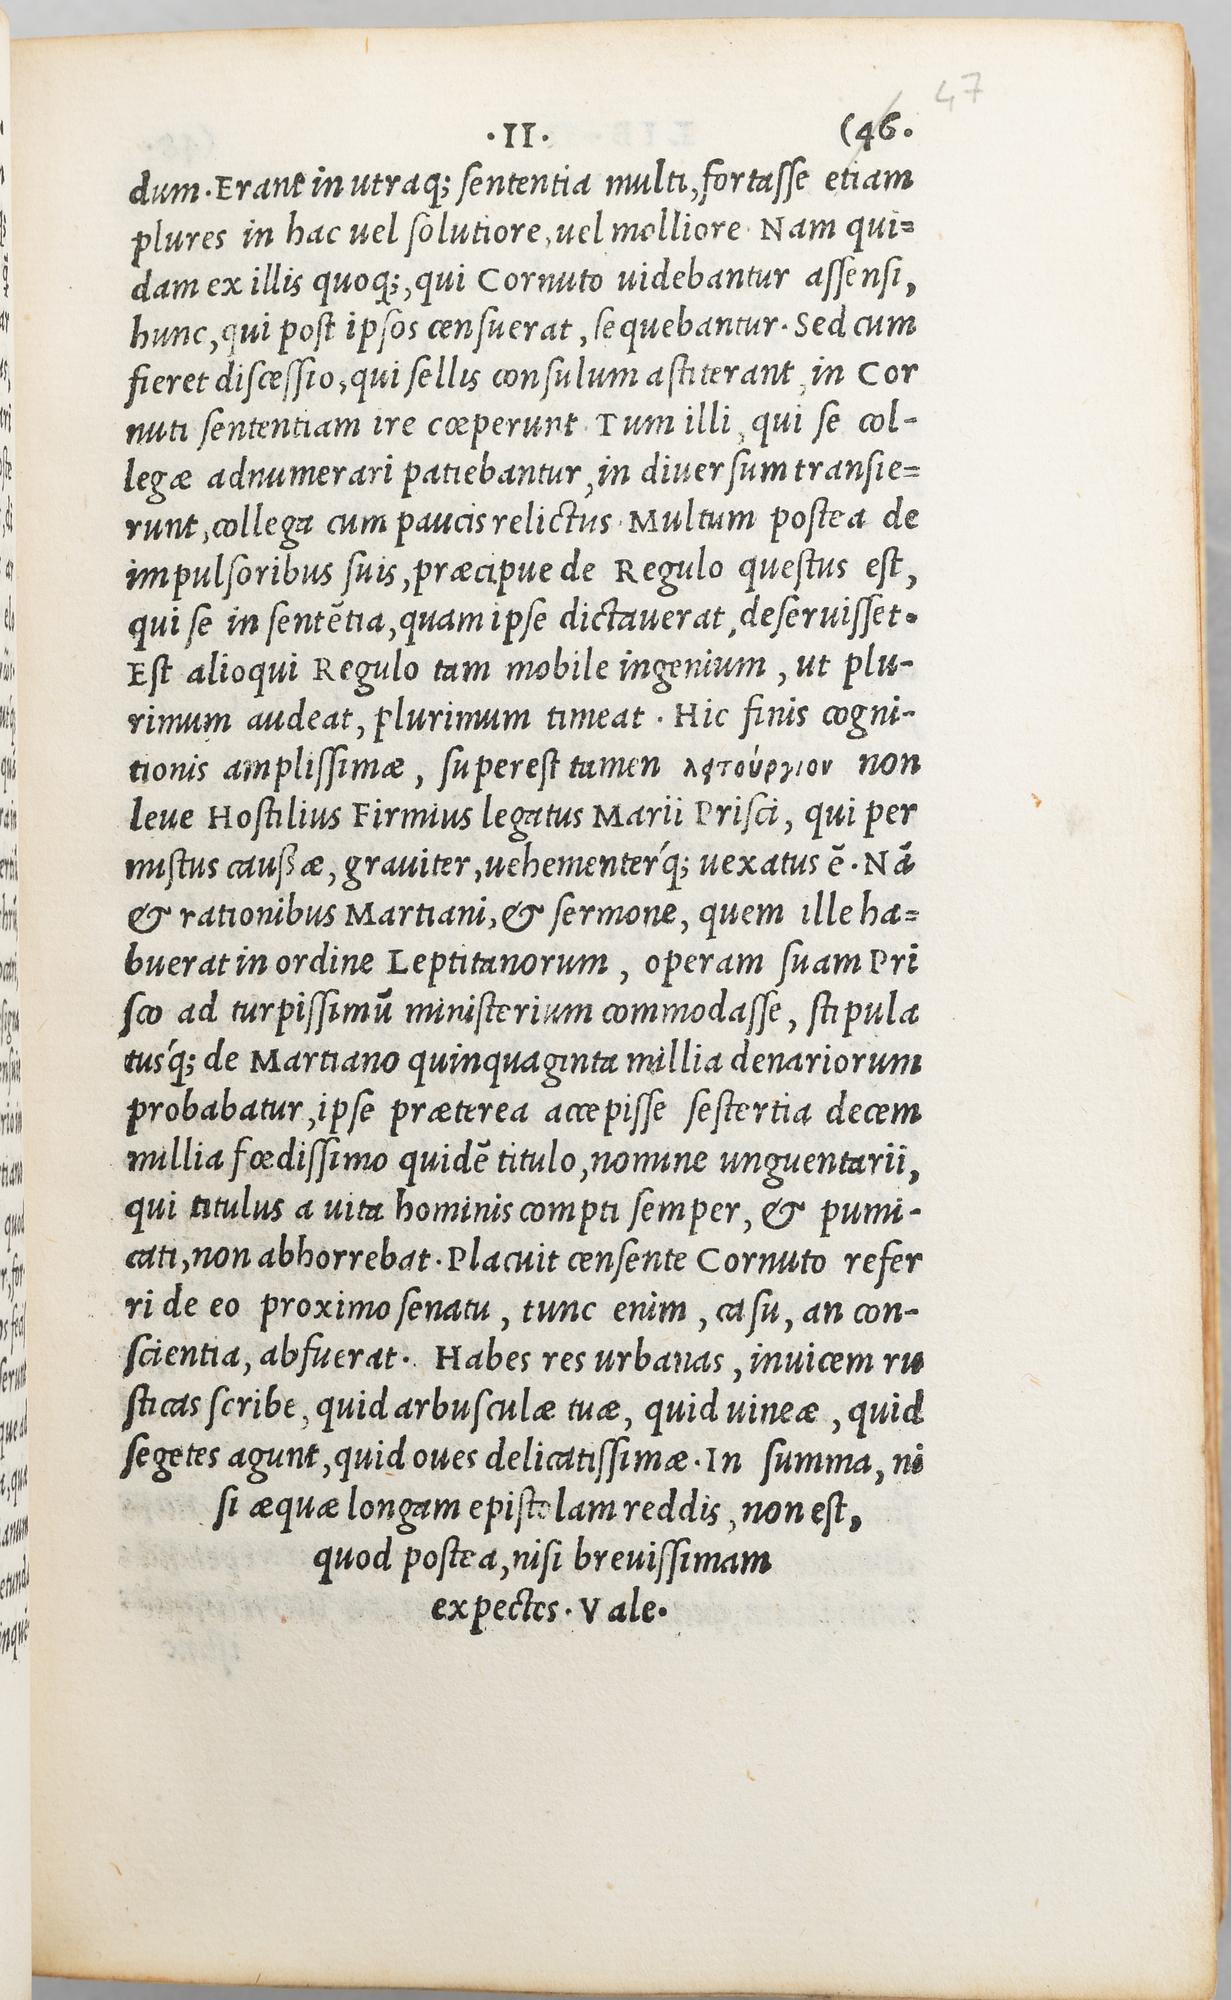 47
·II· (46.
dum·Erant in utraq; sententia multi, fortasse etiam
plures in hac uel solutiore, uel molliore· Nam qui=
dam ex illis quoq;, qui Cornuto uidebantur assensi,
hunc, qui post ipsos censuerat, sequebantur· Sed cum
fieret discessio, qui sellis consulum astiterant, in Cor
nuti sententiam ire cœperunt· Tum illi, qui se col-
legæ adnumerari patiebantur, in diuersum transie=
runt, collega cum paucis relictus· Multum postea de
impulsoribus suis, præcipue de Regulo questus est,
qui se in sentẽtia, quam ipse dictauerat, deseruisset·
Est alioqui Regulo tam mobile ingenium, ut plu-
rimum audeat, plurimum timeat· Hic finis cogni-
tionis amplissimæ, superest tamen λῃτούργιον non
leue Hostilius Firmius legatus Marii Prisci, qui per
mistus caussæ, grauiter, uehementerq́; uexatus ẽ· Nã
& rationibus Martiani, & sermone, quem ille ha=
buerat in ordine Leptitanorum, operam suam Pri
sco ad turpissimũ ministerium commodasse, stipula
tusq́; de Martiano quinquaginta millia denariorum
probabatur, ipse præterea accepisse sestertia decem
millia fœdissimo quidẽ titulo, nomine unguentarii,
qui titulus a uita hominis compti semper, & pumi-
cati, non abhorrebat· Placuit censente Cornuto refer
ri de eo proximo senatu, tunc enim, casu, an con-
scientia, abfuerat· Habes res urbanas, inuicem ru
sticas scribe, quid arbusculæ tuæ, quid uineæ, quid
segetes agunt, quid oues delicatissimæ· In summa, ni
si æquæ longam epistolam reddis, non est,
quod postea, nisi breuissimam
expectes· Vale·